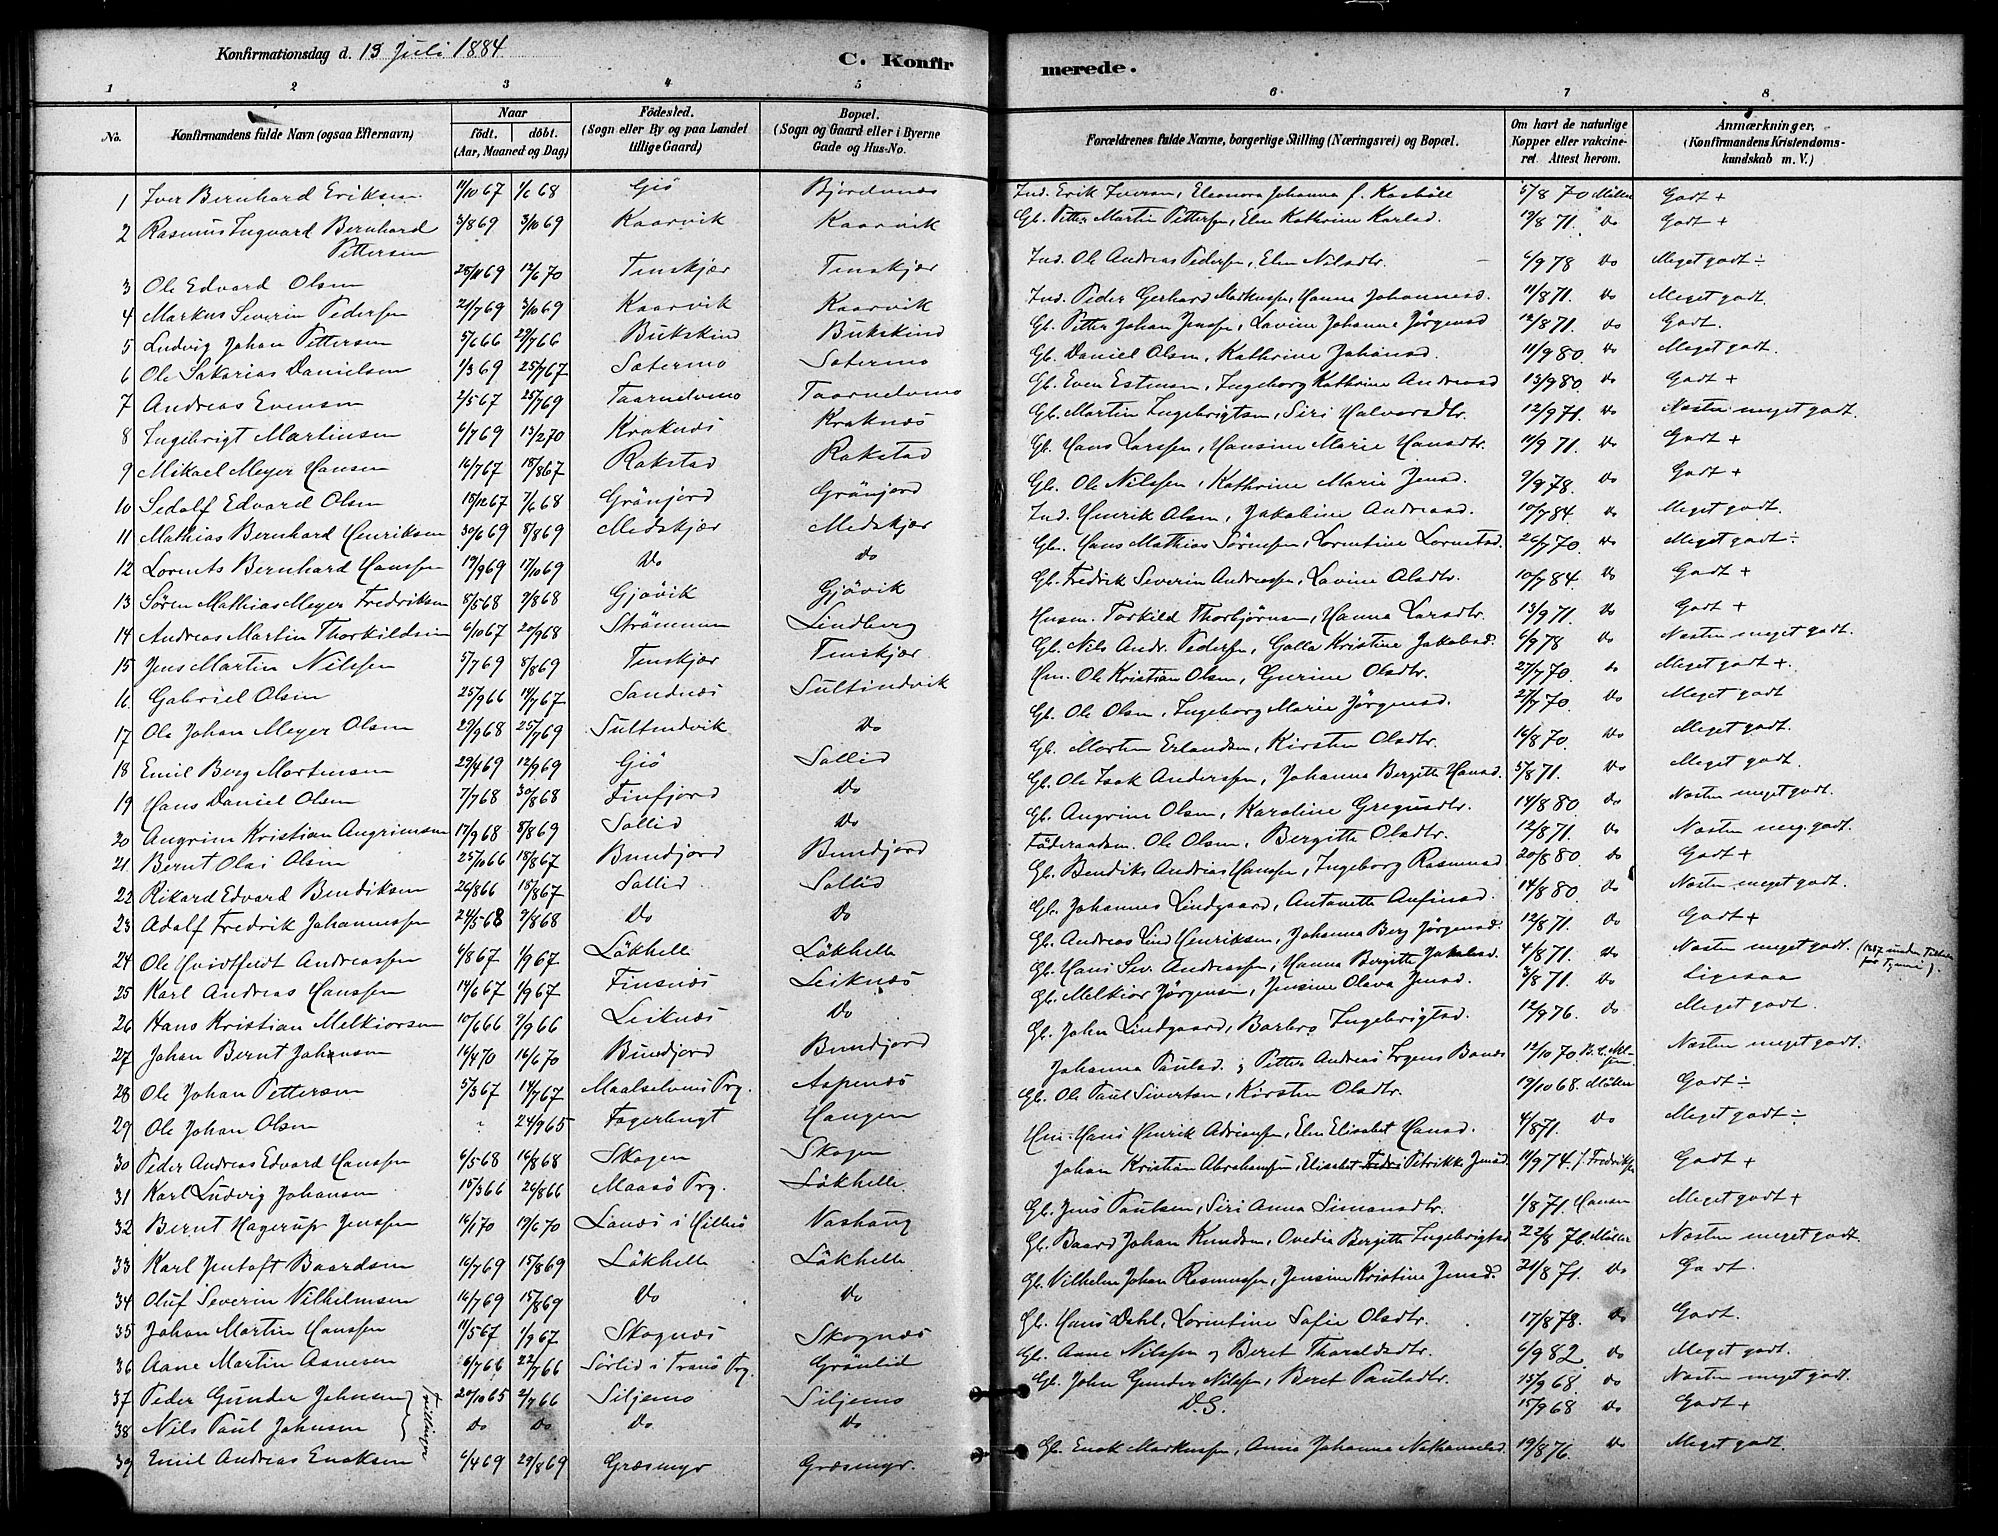 Konfirmationsdag d. 13 Juli 1884
C. Konfirmerede.
1 2 3 4 5 6 7 8
No. Konfirmandens fulde Navn (ogsaa Efternavn) Naar født. døbt. (Aar, Maaned og Dag) Fødested. (Sogn eller By og paa Landet tillige Gaard) Bopæl. (Sogn og Gaard eller i Byerne Gade og Hus-No. Forældrenes fulde Navne, borgerlige Stilling (Næringsvei) og Bopæl. Om havt de naturlige Kopper eller vakcineret. Attest herom. Anmærkninger. (Konfirmandens Kristendomskundskab m. V.)
1 Iver Bernhard Eriksen 11/10 67 1/6 68 Giö Bjorelvnes Ind. Erik Iversen, Eleonora Johanna f. Kasböll 5/8 70 Möller Godt +
2 Rasmus Ingvard Bernhard Pettersen 3/8 69 3/10 69 Kaarvik Kaarvik Gb. Petter Martin Pettersen, Elen Kathrine Karlsd. 19/8 71. do Godt +
3 Ole Edvard Olsen 25/11 69 12/6 70 Tenskjær Tenskjær Ind. Ole Andreas Pedersen, Elen Nilsdtr. 6/9 78 do Meget godt ÷
4 Markus Severin Pedersen 21/7 69 3/10 69 Kaarvik Kaarvik Ind. Peder Gerhard Markussen, Hanna Johannesd. 11/8 71. do Meget godt.
5 Ludvig Johan Pettersen 5/6 66 29/7 66 Bukskind Bukskind Gb. Petter Johan Jenssen, Lavine Johanna Jörgensd 12/8 71. do Godt.
6 Ole Sakarias Danielsen 1/3 69 25/7 67 Sætermo Sætermo Gb. Daniel Olsen, Kathrine Johansd. 11/9 80 do Meget godt.
7 Andreas Evensen 2/5 67 25/7 69 Taarnelvmo Taarnelvmo Gb. Even Estensen, Ingeborg Kathrine Andreasd 13/9 80 do Godt +
8 Ingebrigt Martinsen 6/7 69 13/2 70 Kraknæs Kraknæs Gb. Martin Ingebrigtsen, Siri Halvorsdtr. 12/9 71. do Næsten meget godt.
9 Mikael Meyer Hansen 16/7 67 18/8 67 Rakstad Rakstad Gb. Hans Larssen, Hansine Marie Hansdtr. 11/9 71. do Godt +
10 Sedolf Edvard Olsen 15/12 67 7/6 68 Grönjord Grönjord Gb. Ole Nilssen, Kathrine Marie Jensd. 9/9 78. do Godt +
11 Mathias Bernhard Henriksen 30/6 69 8/8 69 Medskjær Medskjær Ind. Henrik Olsen, Jakobine Andreasd. 10/7 84. do Meget godt.
12 Lorents Bernhard Hanssen 19/9 69 17/10 69 Do Do Gb. Hans Mathias Sörensen, Lorentine Lorentsd. 26/7 70. do Meget godt ÷
13 Sören Mathias Meyer Fredriksen 8/5 68 9/8 68 Gjövik Gjövik Gb. Fredrik Severin Andreassen, Lavine Olsdtr. 10/7 84. do Godt +
14 Andreas Martin Thorkildsen 6/10 67 20/9 68 Strömmen Lindberg Husm. Torkild Thorbjörnsen, Hanna Larsdtr. 13/9 71. do Godt +
15 Jens Martin Nilssen 5/7 69 8/8 69 Tenskjær Tenskjær Gb. Nils Andr. Pedersen, Golla Kristine Jakobsd. 6/9 78 do Næsten meget godt.
16 Gabriel Olsen 25/9 66 14/7 67 Sandnæs Sultindvik Hm. Ole Kristian Olsen, Gurine Olsdtr. 27/7 70. do Meget godt +
17 Ole Johan Meyer Olsen 29/9 68 25/7 69 Sultindvik Do Gb. Ole Olsen, Ingeborg Marie Jörgensd. 27/7 70. do Meget godt
18 Emil Berg Mortensen 29/4 69 12/9 69 Giö Sollid Gb. Morten Erlandsen, Kirsten Olsdtr. 16/8 70. do Meget godt.
19 Hans Daniel Olsen 7/7 68 30/8 68 Finfjord Do Gb. Ole Isak Anderssen, Johanna Bergitte Hansd. 5/8 71. do Meget godt.
20 Angrim Kristian Angrimsen 17/9 68 8/8 69 Sollid Do Gb. Angrim Olsen, Karoline Gregusdtr. 14/8 80 do Næsten meget godt.
21. Bernt Olai Olsen 25/10 66 18/8 67 Bundjord Bundjord Föderaadsm. Ole Olsen, Bergitte Olsdtr. 12/8 71. do Næsten meg. godt.
22 Rikard Edvard Bendiksen 26/8 66 18/8 67 Sollid. Sollid Gb. Bendiks Andrias Hanssen, Ingeborg Rasmusd 20/8 80 do Godt +
23 Adolf Fredrik Johannessen 24/5 68 9/8 68 Do Do Gb. Johannes Lindgaard, Antonette Anfinsd. 14/8 80 do Næsten meget godt.
24 Ole Hvidtfeldt Andreassen 6/8 67 1/9 67 Läkhelle Läkhelle Gb. Andreas Lind Henriksen, Johanna Berg Jörgensd. 12/8 71. do Godt +
25 Karl Andreas Hanssen 14/6 67 1/9 67 Finsnæs Leiknæs Gb. Hans Sev. Andreassen, Hanna Bergitte Jakobsd. 4/8 71. do Næsten meget godt.
26 Hans Kristian Melkiorsen 10/6 66 2/9 66 Leiknæs Do Gb. Melkior Jörgensen, Jensine Olava Jensd. 3/8 71. do Ligesaa
27 Johan Bernt Johnsen 14/4 70 16/6 70 Bundjord Bundjord Gb. John Lindgaard, Barbro Ingebrigtsd. 12/9 76. do Meget godt.
28 Ole Johan Pettersen 5/3 67 14/7 67 Maalselvens Prg. Aspenæs Johanna Paulsd. & Petter Andreas Irgens Bones 12/10 70. Næsten meget godt.
29 Ole Johan Olsen 24/9 65 Fagerlengt Haugen Gb. Ole Paul Sivertsen, Kirsten Olsdtr. 19/10 68. Möller Godt ÷
30 Peder Andreas Edvard Hanssen 6/5 68 16/8 68 Skogen Skogen Hm. Hans Henrik Adrianssen, Elen Elisabet Hansd. 4/8 71. do Meget godt ÷
31 Karl Ludvig Johansen 15/3 66 26/8 66 Maasö Prg. Läkhelle Johan Kristian Abrahamsen, Elisabet Petrikke Jensd. 11/9 74. J. Fredriksen Godt +
32 Bernt Hagerup Jenssen 16/1 70 19/6 70 Lanæs i Hillesö Vashaug Gb. Jens Paulsen, Siri Anna Simonsdtr. 1/8 71 Hansen Meget godt +
33 Karl Jentoft Baardsen 16/7 69 15/8 69 Läkhelle Läkhelle Gb. Baard Johan Knudsen, Ovedia Bergitte Ingebrigtsd. 22/8 76. Möller Næsten meget godt.
34 Oluf Severin Vilhelmsen 16/7 69 15/8 69 Do Do Gb. Vilhelm Johan Rasmussen, Jensine Kristine Jensd. 21/8 71. do Godt.
35 Johan Martin Hanssen 11/5 67 1/9 67 Skognæs Skognæs Gb. Hans Dahl, Lorentine Sofie Olsdtr. 17/8 78. do Godt.
36 Aane Martin Aanesen 6/7 66 22/7 66 Sörlid i Tranö Prg. Grönlid Gb. Aane Nilssen & Beret Tharaldsdtr. 6/9 82. do Meget godt.
37 Peder Gunder Johnsen 20/10 65 2/7 66 Siljemo Siljemo Gb. John Gunder Nilssen, Beret Paulsdtr. 15/9 68. do Næsten meget godt.
Tvillinger
38 Nils Paul Johnsen Do Do Do Do D.S. 15/9 68 do Godt +
39 Emil Andreas Enoksen 6/4 69 29/8 69 Græsmyr Græsmyr. Gb. Enok Markussen, Anna Johanna Nathanaelsd. 19/8 76. do Meget godt.